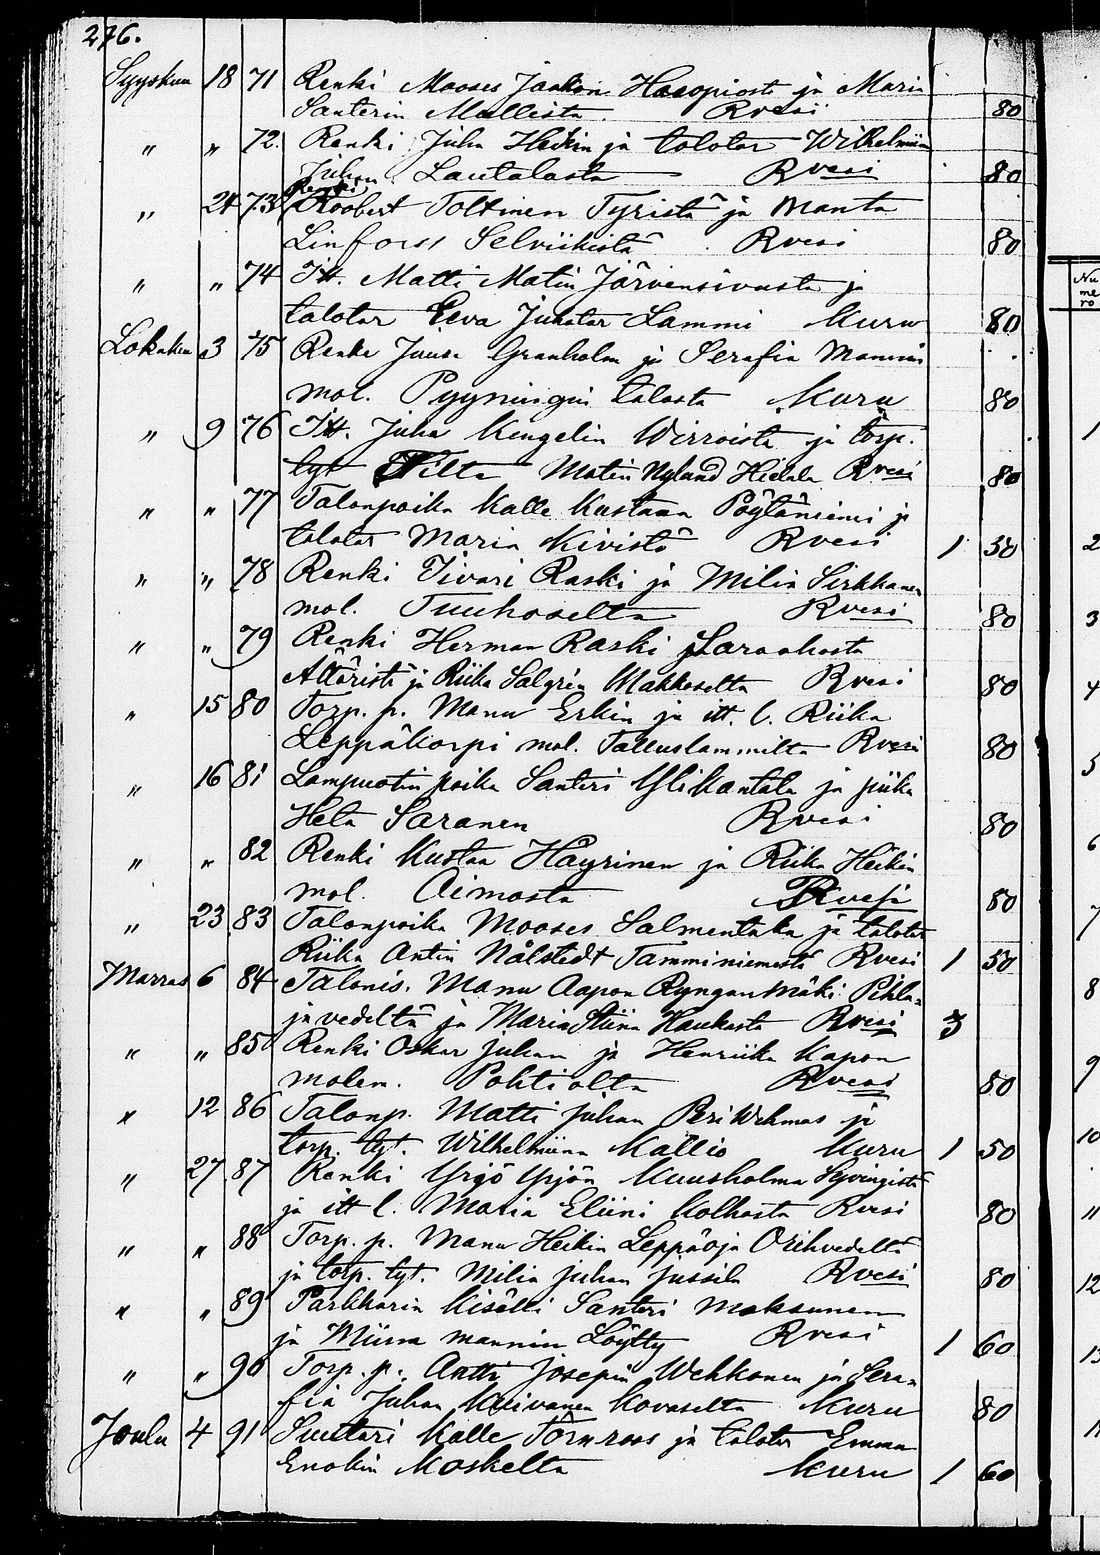 276.
Syyskuu 18 71 Renki Mooses Jaakon Haaopiost ja Maria
Santerin Mullista. Rvesi 80
" " 72. Renki Juha Heikin ja talotar Wilhelmiina
Juhan Lautalasta Rvesi 80
Renki
" 24 73 Roobert Toltinen Tyristä ja Manta
Linforss Selviikistä Rvesi 80
" " 74 Itt. Matti Matin Järvensivusta ja
talotar Eeva Juhatar Lammi Kuru 80
Lokakuu 3 75 Renki Juuse Granholm ja Serafia Mannin
mol. Pyyningin talosta Kuru 80
" 9 76 Itt. Juha Kengelin Wirroista ja torp.
tyt Hilta Matin Nylund Hietala Rvesi 80
" " 77 Talonpoika Kalle Kustaan Pöytäniemi ja
talotar Maria Kivistö Rvesi 1 50
" " 78 Renki Iivari Raski ja Milia Sirkkanen
mol. Tuuhoselta Rvesi 80
" " 79 Renki Herman Raski Laraahasta
Attäristä ja Riika Salgrén Makkoselta Rvesi 80
" 15 80 Torp. p. Manu Erkin ja itt. l. Riika
Leppäkorpi mol. Talluslammilta Rvesi 80
" 16 81 Lampuotin poika Santeri Ylikantola ja piika
Heta Saranen Rvesi 80
" " 82 Renki Kustaa Häyrinen ja Riika Heikin
mol. Aimasta Rvesi 80
" 23 83 Talonpoika Mooses Salmentaka ja talotar
Riika Antin Nålstedt Tamminiemestä Rvesi 1 50
Marras 6 84 Talonis. Manu Aapon Rynganmäki Pihla-
javedeltä ja Maria Stiina Haukasta Rvesi 3
" " 85 Renki Oskar Juhan ja Henriika Kapon
molem. Pohtiolta Rvesi 80
" 12 86 Talonp. Matti Juhan PeriWehmas ja
torp. tyt. Wilhelmiina Kallio Kuru 1 50
" 27 87 Renki Yrjö Yrjön Kuusholma Syvingistä
ja itt l. Maria Eliini Kolkasta Rvesi 80
" " 88 Torp. p. Manu Heikin Leppäoja Orihvedeltä
ja torp. tyt. Milia Juhan Jussila Rvesi 80
" " 89 Parkkarin kisälli Santeri Maksunen
ja Miina mannin Löytty Rvesi 1 60
" " 90 Torp. p. Antti Josepin Wehkonen ja Sera-
fia Juhan Kuivanen Kovaselta Kuru 80
Joulu 4 91 Suutari Kalle Törnroos ja talotar Emma
Enokin Moskelta Kuru 1 60
Nu
me
ro
1
2
3
4
5
6
7
8
9
10
11
12
13